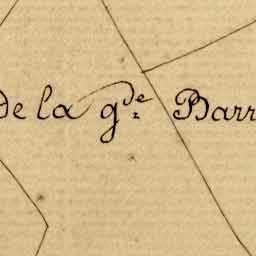 de la g.de Barr